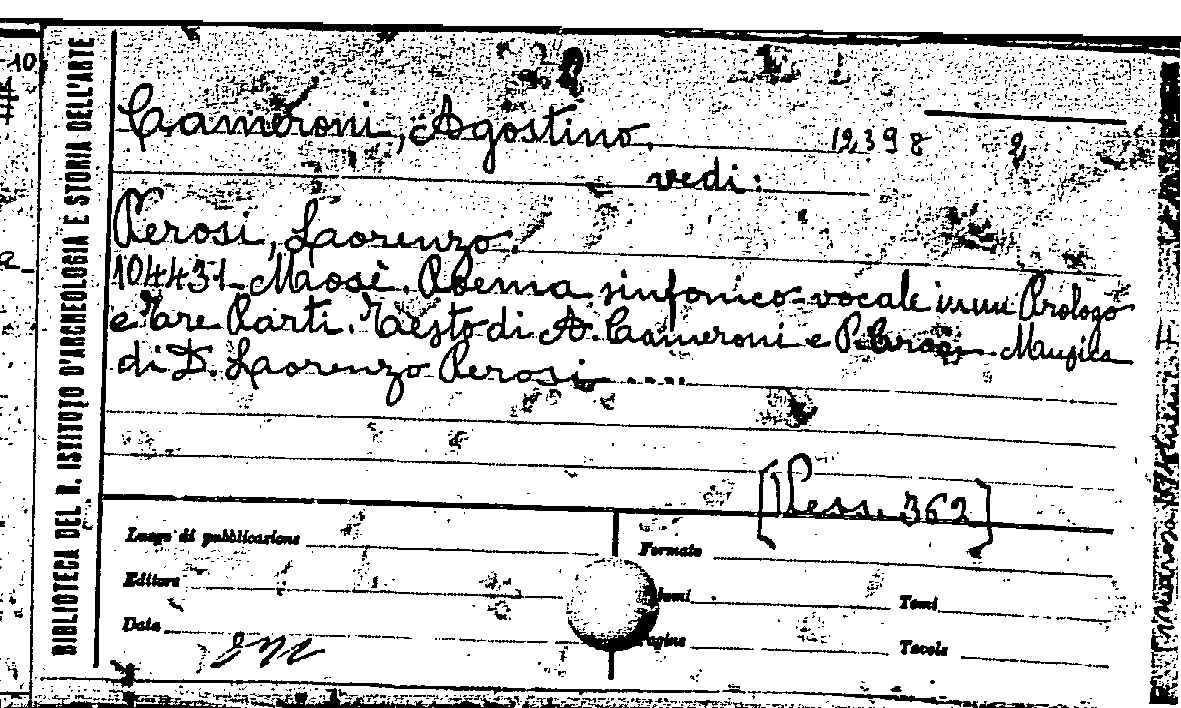 BIBLIOTECA DEL R. ISTITUTO D'ARCHEOLOGIA E STORIA DELL'ARTE
10
Cameroni, Agostino. 12398 2
vedi:
Perosi, Lorenzo.
104431-Mosè. Poema sinfonico-vocale in un Prologo
e Tre Parti. Testo di A. Cameroni e P. Musica
di D. Lorenzo Perosi ....
[Vess. 362]
Luogo di pubblicazione Formato
Editore Volumi Tomi
Data Pagine Tavole